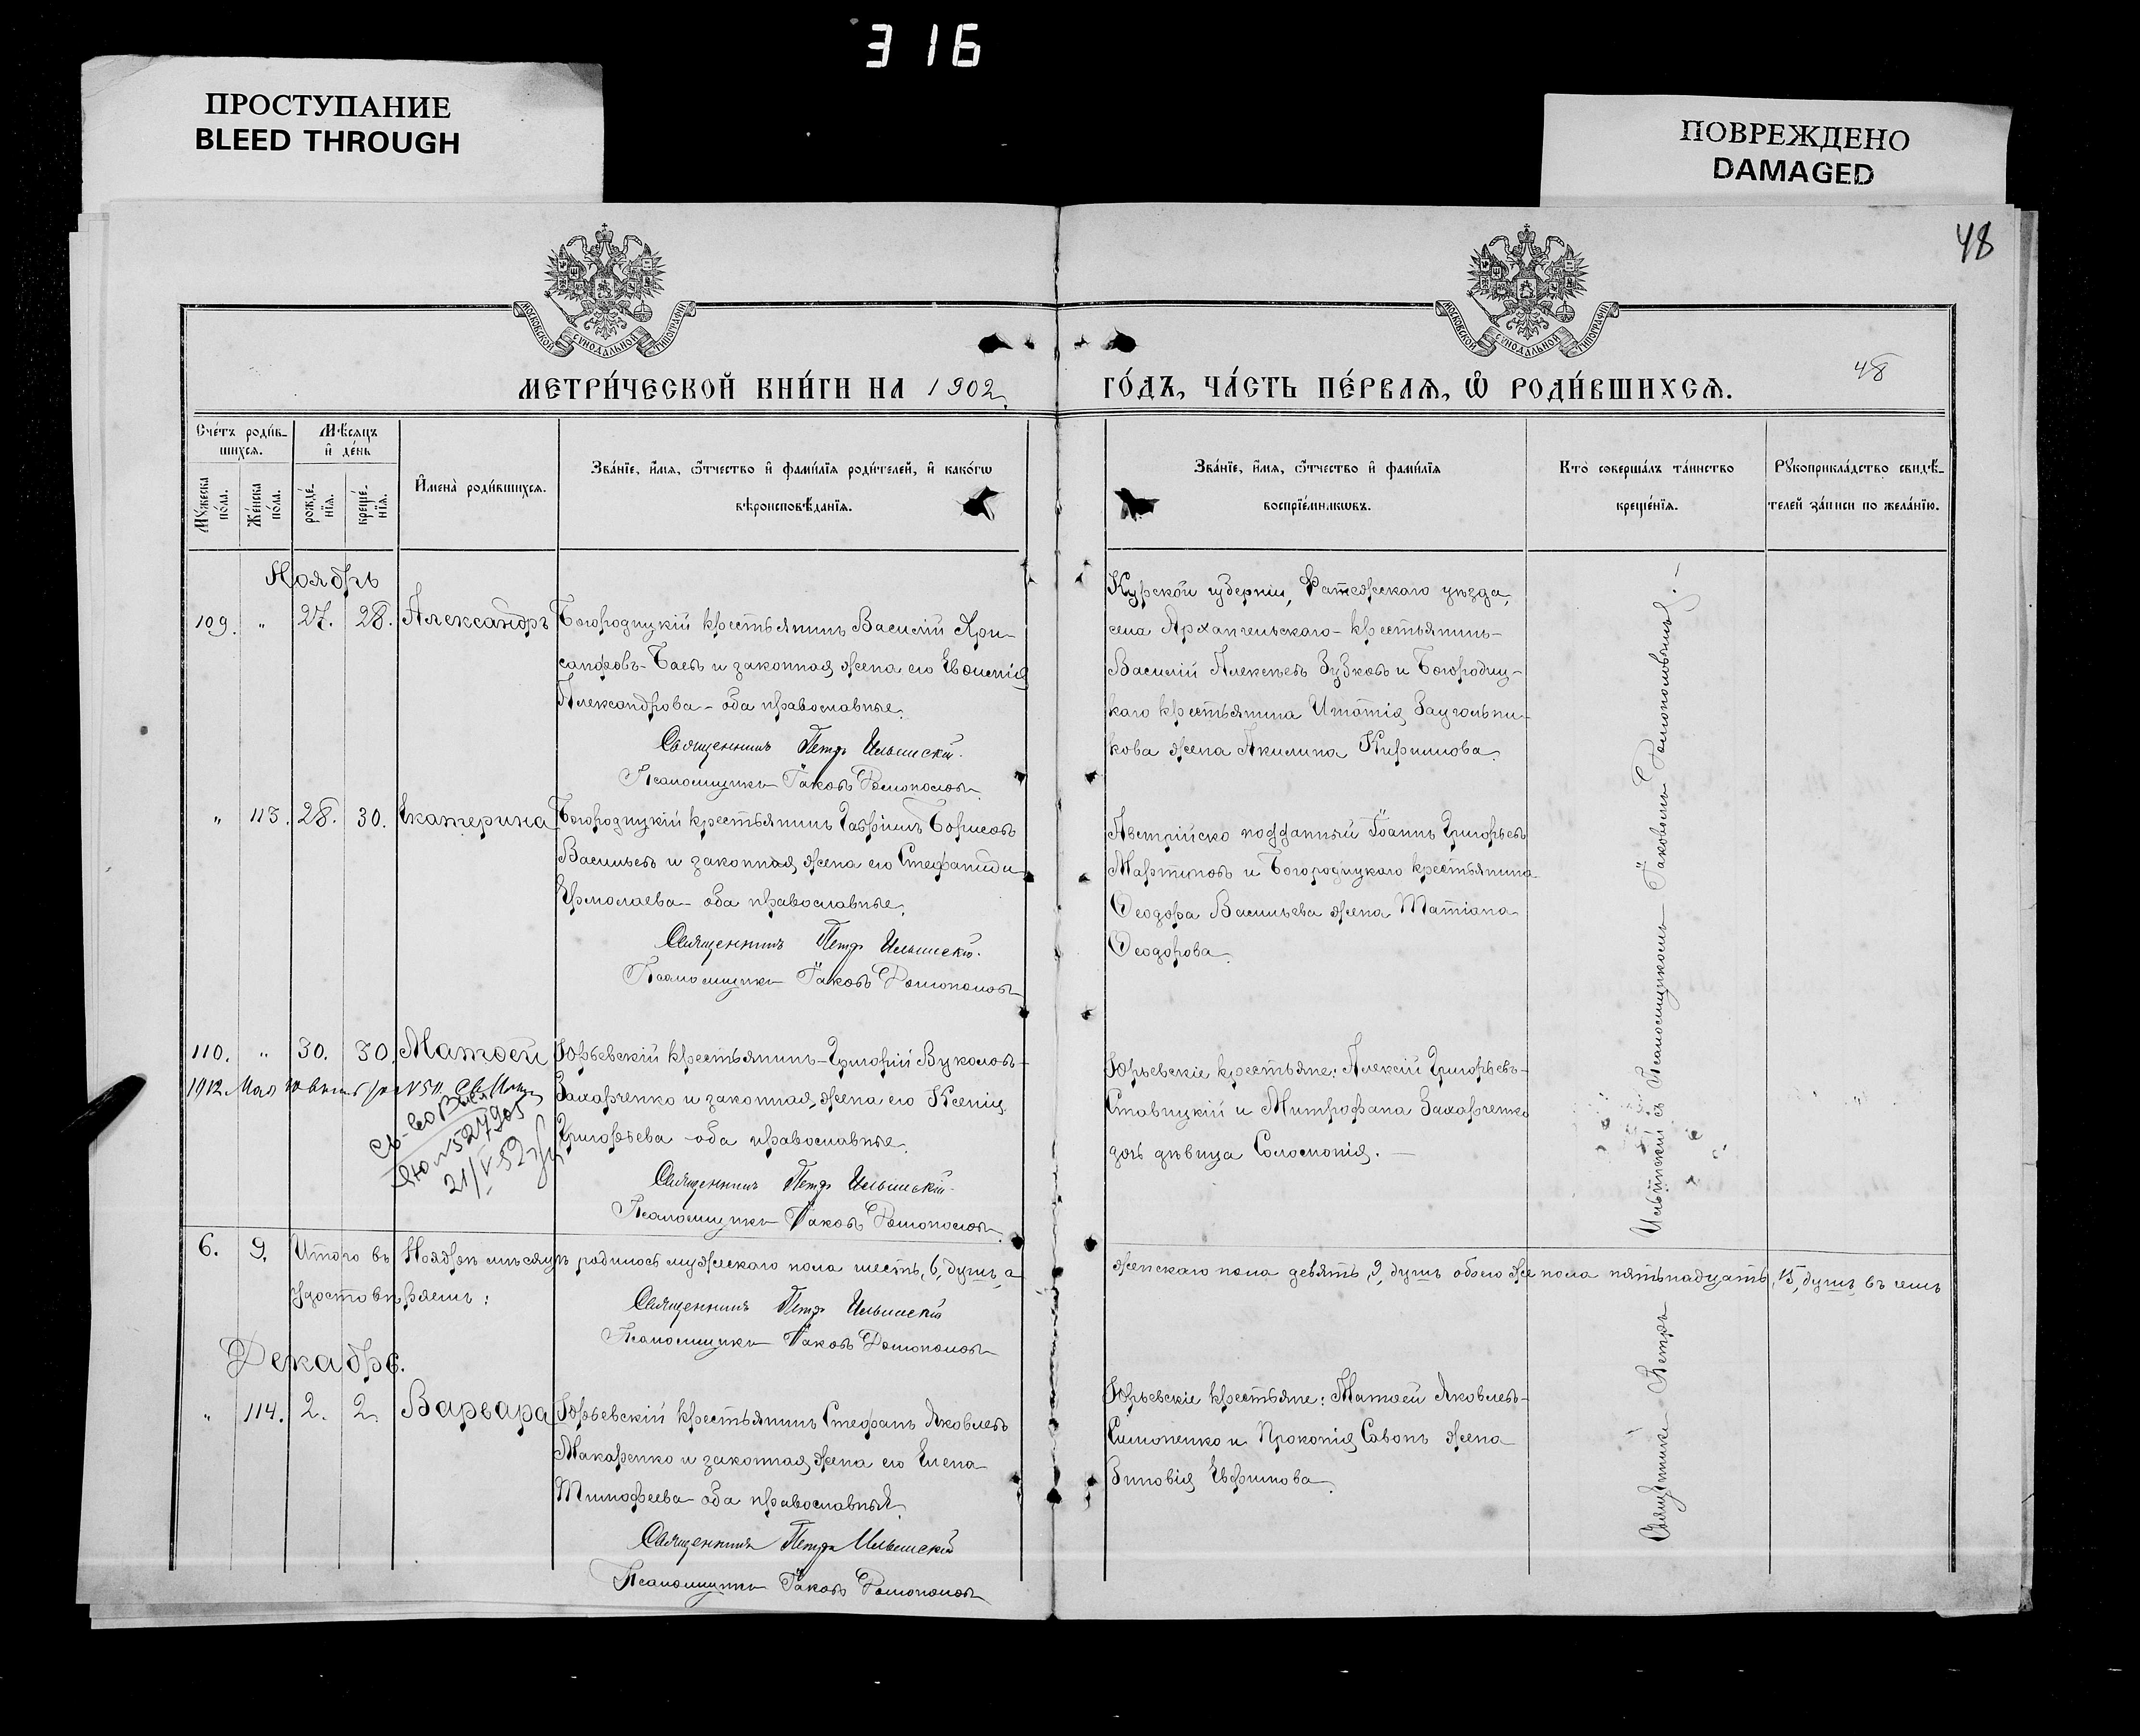 316
ПРОСТУПАНИЕ
BLEED THROUGH
ПОВРЕЖДЕНО
DAMAGED
48
МОСКОВСКОЙ СѴНОДАЛЬНОЙ ТИПОГРАФІИ
МОСКОВСКОЙ СѴНОДАЛЬНОЙ ТИПОГРАФІИ
МЕТРИ́ЧЕСКОЙ КНИ́ГИ НА 1902
ГО́ДЪ, ЧА́СТЬ ПЕ́РВАѦ, Ѡ РОДИ́ВШИХСѦ.
48
Сче́тъ роди́в-
шихсѧ.
Мꙋ́жеска по́ла.
Же́нска по́ла.
Мѣ́сѧцъ
и҆ де́нь
рожде́-
нїѧ.
креще́-
нїѧ.
И҆мена̀ роди́вшихсѧ.
Зва́нїе, и҆́мѧ, ѻ҆́тчество и҆ фами́лїѧ роди́телей, и҆ како́гѡ
вѣроисповѣ́данїѧ.
Зва́нїе, и҆́мѧ, ѻ҆́тчество и҆ фами́лїѧ
воспрїе́мникѡвъ.
Кто̀ соверша́лъ та́инство
креще́нїѧ.
Рꙋкоприкла́дство свидѣ́-
телей за́писи по жела́нїю.
Ноябрь
109. " 27. 28. Александръ
Богородицкій крестьянинъ Василій Хри-
санфовъ-Баевъ и законная жена его Евѳимія
Александрова - оба православные.
Священникъ Петръ Ильинскій.
Псаломщикъ Іаковъ
Курской губерніи, Фатежскаго уѣзда,
села Архангельскаго - крестьянинъ-
Василій Алексѣевъ Зубковъ и Богородиц-
каго крестьянина Игнатія Заугольни-
кова жена Акилина Кириллова.
" 113. 28. 30. Екатерина
Богородицкій крестьянинъ Гавріилъ Борисовъ
Васильевъ и законная жена его Стефанида
Ермолаева - оба православные.
Священникъ Петръ Ильинскій.
Псаломщикъ Іаковъ
Австрійско подданный Іоаннъ Григорьевъ
Мартиновъ и Богородицкаго крестьянина
Ѳеодора Васильева жена Татіана
Ѳеодорова.
110. " 30. 30. Матѳей
Юрьевскій крестьянинъ-Григорій Вуколовъ-
Захарченко и законная жена его Ксенія
Григорьева - оба православные.
Священникъ Петръ Ильинскій.
Псаломщикъ Іаковъ
1912 Мая
№ 527905
21/V-52
Юрьевскіе крестьяне: Алексій Григорьевъ-
Ставицкій и Митрофана Захарченко
дочь дѣвица Соломонія. -
6. 9. Итого въ Ноябрѣ мѣсяцѣ родилось мужескаго пола шесть, 6, душъ, а
женскаго пола девять, 9, душъ обоего же пола пятьнадцать, 15, душъ, въ чемъ
удостовѣряемъ:
Священникъ Петръ Ильинскій
Псаломщикъ Іаковъ
Декабрь.
" 114. 2. 2. Варвара
Юрьевскій крестьянинъ Стефанъ Яковлевъ
Макаренко и законная жена его Елена
Тимофеева - оба православныѣ.
Священникъ Петръ Ильинскій
Псаломщикъ Іаковъ
Юрьевскіе крестьяне: Матѳей Яковлевъ-
Симоненко и Прокопія Савонъ жена
Зиновія Евфимова.
Священникъ Петръ Ильинскій съ Псаломщикомъ Іаковомъ